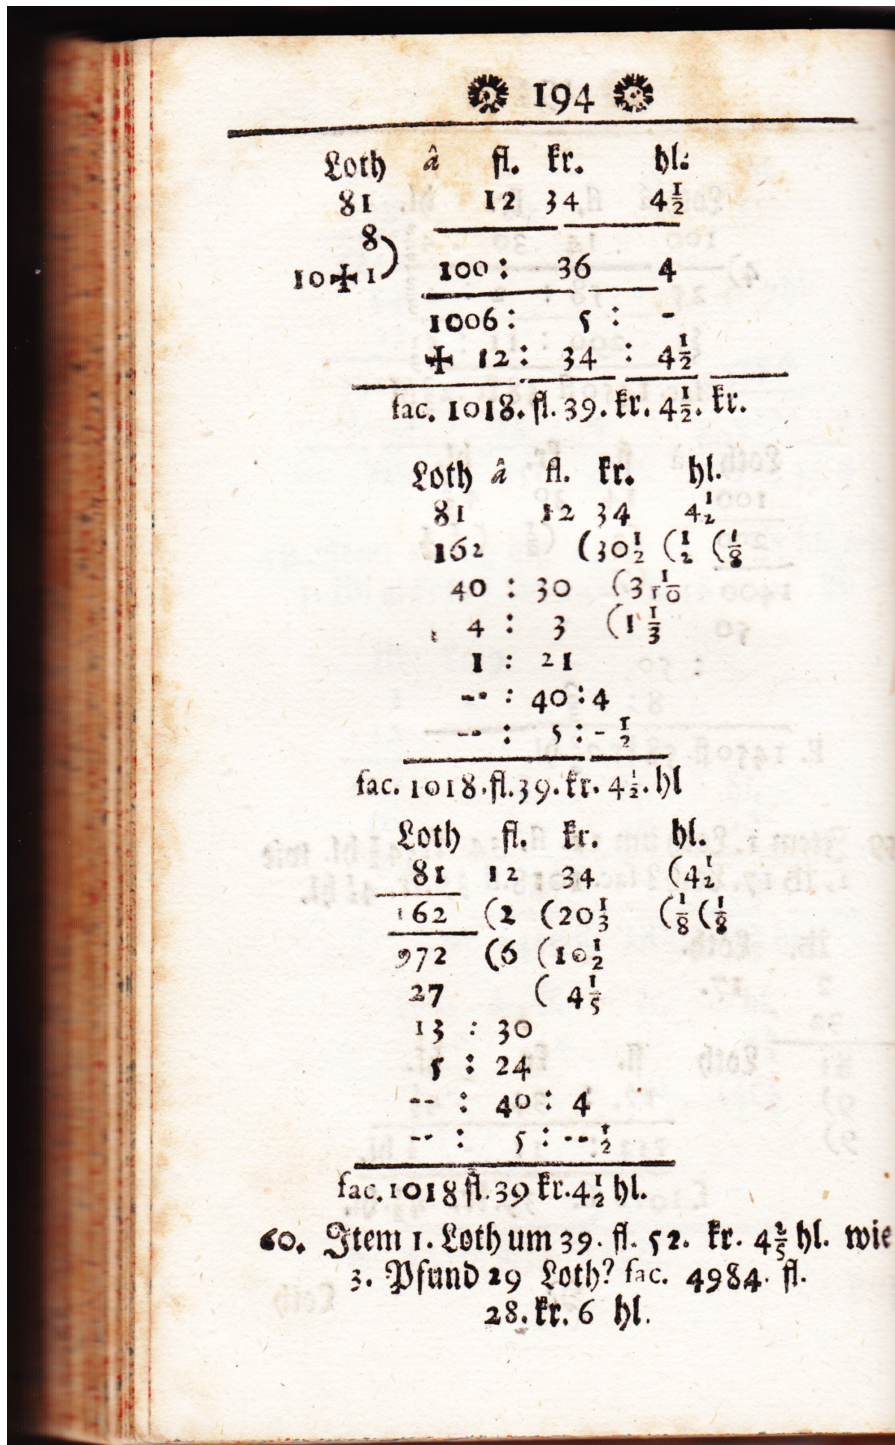 194
Loth â fl. kr. hl:
81 12 34 4½
8
10 ✠ 1
100 : 36 4
1006 : 5 : -
✠ 12 : 34 : 4½
fac. 1018. fl. 39. kr. 4½. kr.
Loth â fl. kr. hl.
81 12 34 4½
162 (30½ (½ (⅛
40 : 30 (3 1/10
4 : 3 (1⅓
1 : 21
-- : 40 : 4
-- : 5 : - ½
fac. 1018. fl. 39. kr. 4½. hl
Loth fl. kr. hl.
81 12 34 (4½
162 (2 (20⅓ (⅛ (⅛
972 (6 (10½
27 ( 4⅕
13 : 30
5 : 24
-- : 40 : 4
-- : 5 : -- ½
fac. 1018 fl. 39 kr. 4½ hl.
60. Item 1. Loth um 39. fl. 52. kr. 4⅖ hl. wie
3. Pfund 29 Loth? fac. 4984. fl.
28. kr. 6 hl.